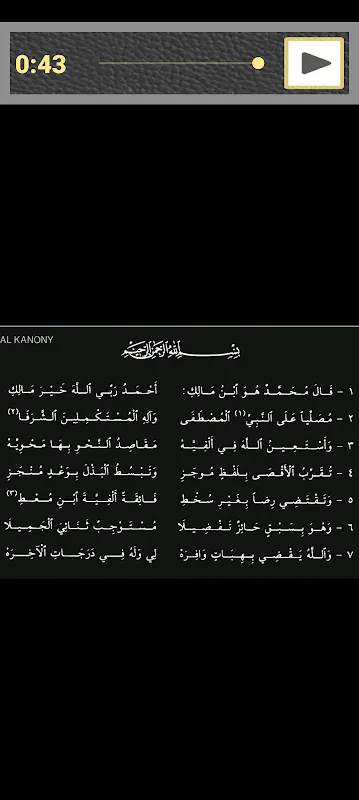 0:43
AL KANONY
بِسْمِ اللَّهِ الرَّحْمَنِ الرَّحِيمِ
١ - قَالَ مُحَمَّدٌ هُوَ ٱبْنُ مَالِكِ: أَحْمَدُ رَبِّي ٱللَّهَ خَيْرَ مَالِكِ
٢ - مُصَلِّياً عَلَى ٱلنَّبِيِّ(١) ٱلْمُصْطَفَى وَآلِهِ ٱلْمُسْتَكْمِلِينَ ٱلشُّرَفَا(٢)
٣ - وَأَسْتَعِينُ ٱللَّهَ فِي أَلْفِيَّهْ مَقَاصِدُ ٱلنَّحْوِ بِهَا مَحْوِيَّهْ
٤ - تُقَرِّبُ ٱلْأَقْصَى بِلَفْظٍ مُوجَزِ وَتَبْسُطُ ٱلْبَذْلَ بِوَعْدٍ مُنْجَزِ
٥ - وَتَقْتَضِي رِضاً بِغَيْرِ سُخْطِ فَائِقَةً أَلْفِيَّةَ ٱبْنِ مُعْطِ(٣)
٦ - وَهْوَ بِسَبْقٍ حَائِزٌ تَفْضِيلَا مُسْتَوْجِبٌ ثَنَائِيَ ٱلْجَمِيلَا
٧ - وَٱللَّهُ يَقْضِي بِهِبَاتٍ وَافِرَهْ لِي وَلَهُ فِي دَرَجَاتِ ٱلْآخِرَهْ